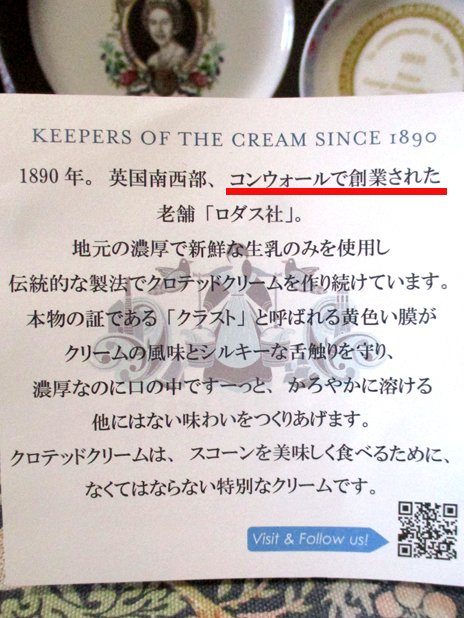 KEEPERS OF THE CREAM SINCE 1890
1890年。英国南西部、コンウォールで創業された
老舗「ロダス社」。
地元の濃厚で新鮮な生乳のみを使用し
伝統的な製法でクロテッドクリームを作り続けています。
本物の証である「クラスト」と呼ばれる黄色い膜が
クリームの風味とシルキーな舌触りを守り、
濃厚なのに口の中ですーっと、かろやかに溶ける
他にはない味わいをつくりあげます。
クロテッドクリームは、スコーンを美味しく食べるために、
なくてはならない特別なクリームです。
Visit & Follow us!